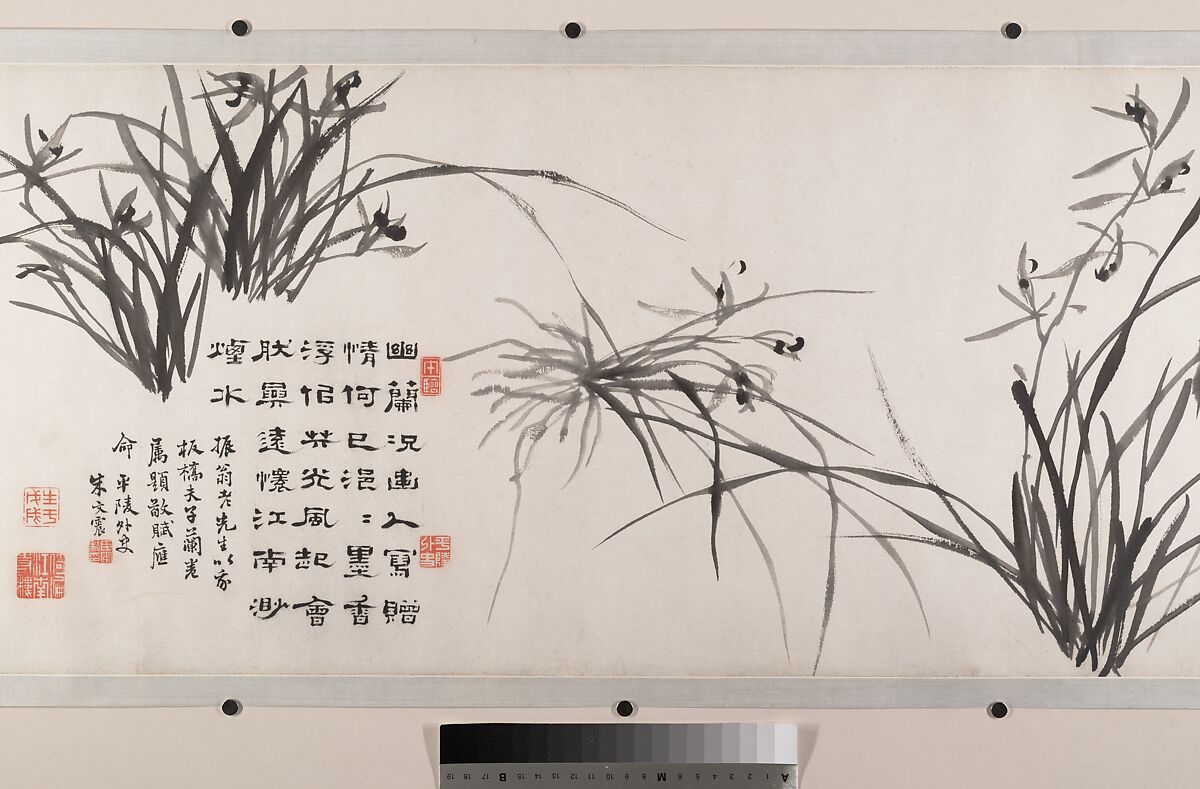 幽蘭況幽人寫贈
情何已浥〻墨香
浮佀共光風起會
肰興遠懷江南渺
煙水
振翁老先生以家
板橋夫子蘭卷
属題敬賦應
命 平陵外史
朱文震
平陵外史
A 1 2 3 4 5 6 M 8 9 10 11 12 13 14 15 B 17 18 19